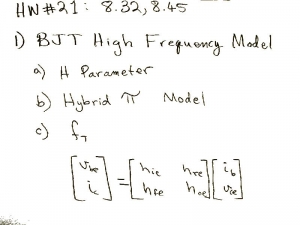 HW #21: 8.32, 8.45
1) BJT High Frequency Model
a) H Parameter
b) Hybrid π Model
c) f_T
[v_be] = [h_ie h_re] [i_b]
[i_c] [h_fe h_oe] [v_ce]